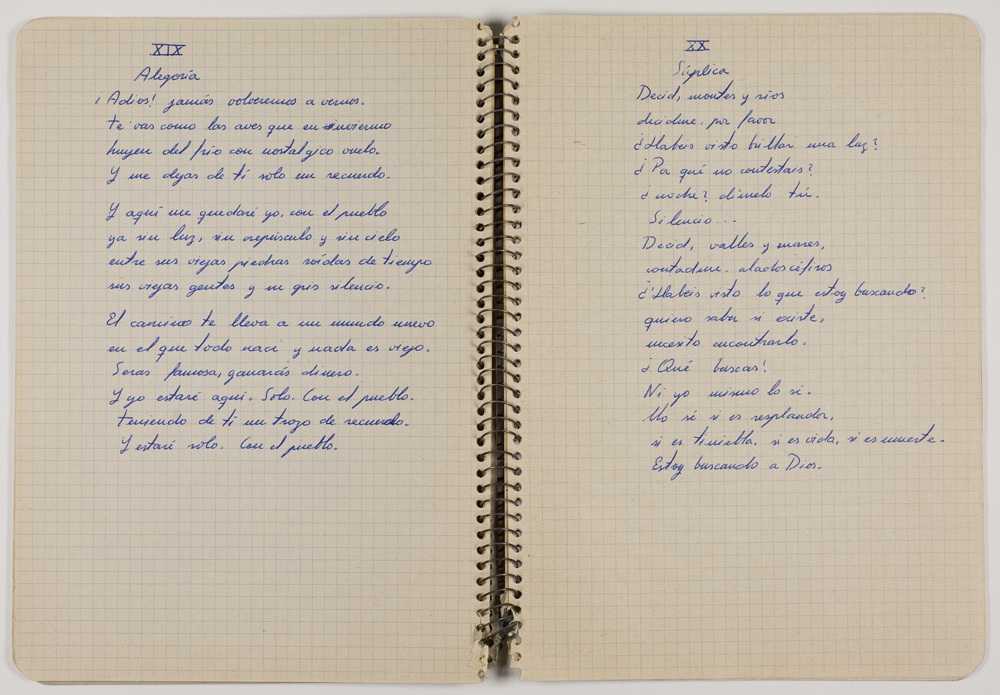 XIX
Alegoría
¡Adios! jamás volveremos a vernos.
te vas como las aves que en invierno
huyen del frío con nostalgico vuelo.
Y me dejas de tí solo un recuerdo.
Y aquí me quedaré yo, con el pueblo
ya sin luz, sin crepúsculo y sin cielo
entre sus viejas piedras roídas de tiempo
sus viejas gentes y su gris silencio.
El camino te lleva a un mundo nuevo
en el que todo nace y nada es viejo.
Seras famosa, ganarás dinero.
Y yo estaré aquí. Solo. Con el pueblo.
teniendo de ti un trozo de recuerdo.
Y estaré solo. Con el pueblo.
XX
Súplica
Decid, montes y rios
decidme. por favor
¿Habeis visto brillar una luz?
¿Por qué no contestais?
¿noche? dímelo tú.
Silencio...
Decid, valles y mares,
contadme. alados céfiros
¿Habeis visto lo que estoy buscando?
quiero saber si existe,
necesito encontrarlo.
¿Qué buscas!
Ni yo mismo lo sé.
No sé si es resplandor,
si es tiniebla, si es vida, si es muerte.
Estoy buscando a Dios.